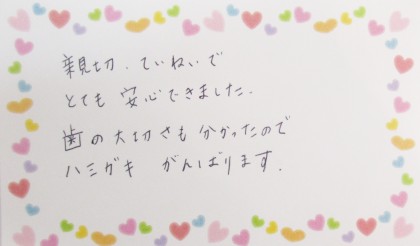 親切．ていねいで
とても 安心できました．
歯の大切さも分かったので
ハミガキ がんばります．